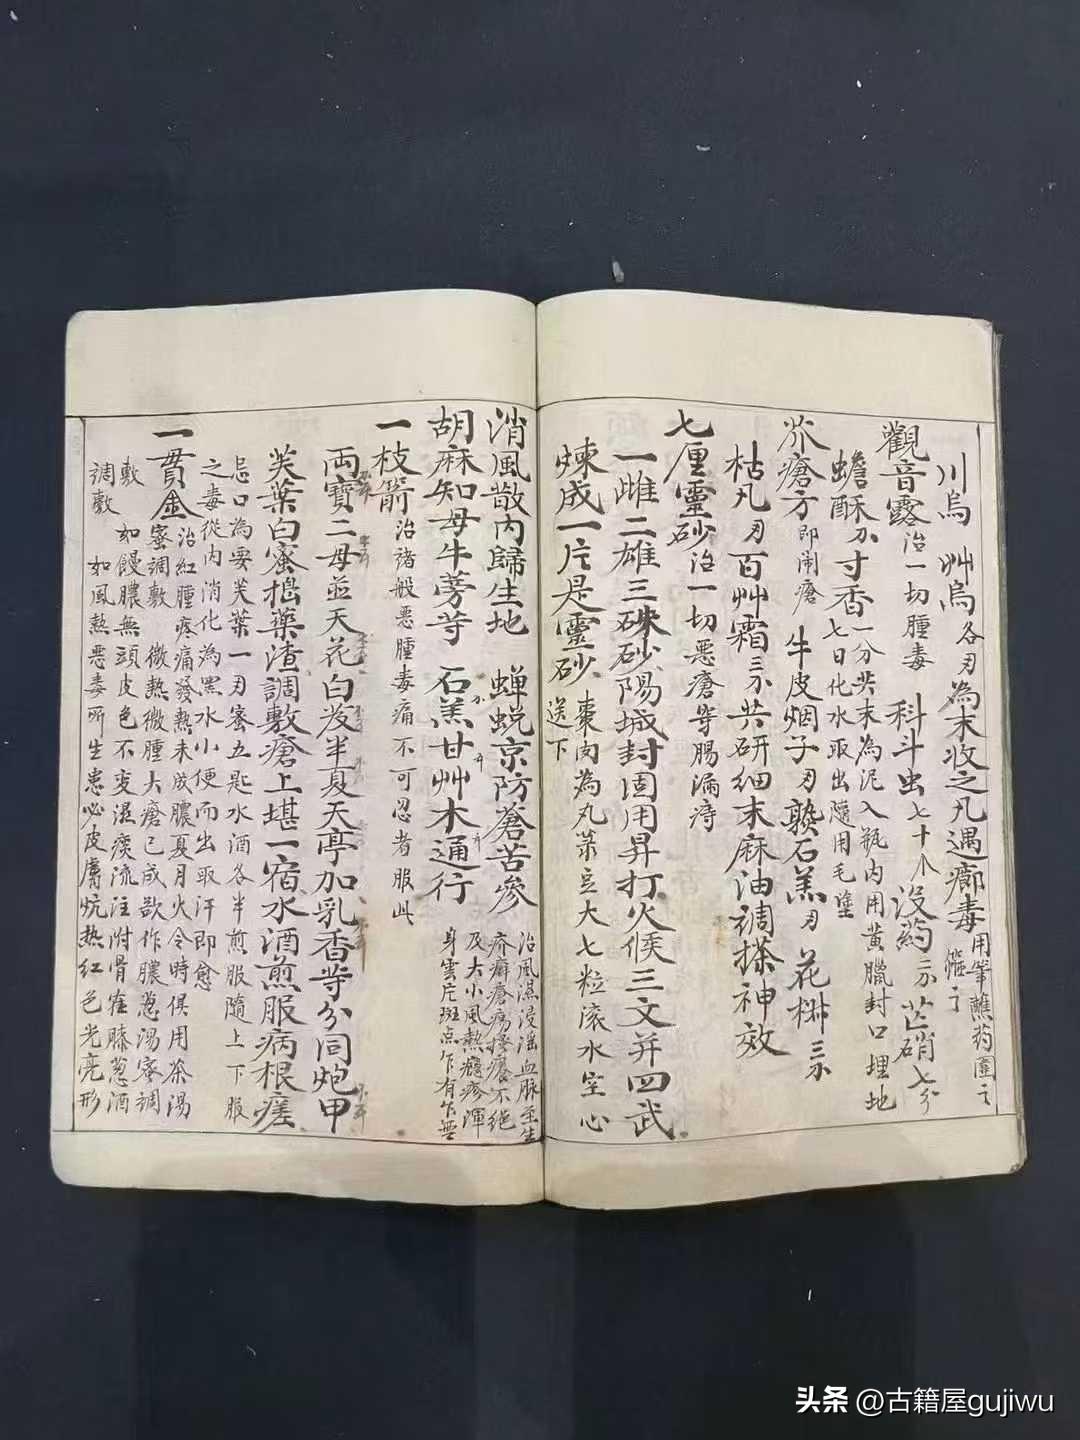 川烏 艸烏各刃為末收之凡遇癤毒用筆蘸药圍之
觀音露治一切腫毒 科斗虫七十个 没药二分 芒硝七分
蟾酥 寸香一分共末為泥入瓶内用黄臘封口埋地
七日化水取出隨用毛塗
疥瘡方即闹瘡 牛皮烟子刃 熟石羔刃 花椒三
枯凡刃百艸霜三 共研细末麻油調搽神效
七厘靈砂治一切惡瘡等腸漏痔
一雌二雄三硃砂陽城封固用昇打火候三文并四武
煉成一片是靈砂棗肉為丸菉豆大七粒滚水空心
送下
消風散内歸生地 蝉蜕京防蒼苦參治風濕浸淫血脉至生
疥癬瘡瘍搔癢不绝
胡麻知母牛蒡等 石羔甘艸木通行及大小風熱癮疹渾
身雲片斑点乍有乍無
一枝箭治諸般惡腫毒痛不可忍者服此
両寶二母並天花白芨半夏天亭加乳香等分同炮甲
芙葉白蜜搗藥渣調敷瘡上堪一宿水酒煎服病根瘥
忌口為要芙葉一刃蜜五匙水酒各半煎服隨上下服
之毒從内消化為黑水小便而出取汗即愈
一貫金治红腫疼痛發熱未成膿夏月火令時俱用茶湯
蜜調敷 微熱微腫大瘡已成欲作膿葱湯蜜調
敷 如饅膿無頭皮色不变濕痰流注附骨 膝葱酒
調敷 如風熱惡毒所生患必皮膚炕热红色光亮形
头条 @古籍屋gujiwu